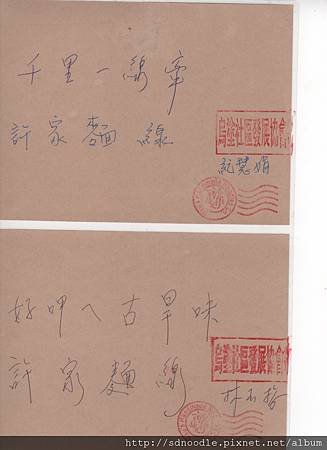 千里一線牽
許家麵線
烏塗社區發展協會
紀慧娟
好呷ㄟ古早味
許家麵線
烏塗社區發展協會
http://sdnoodle.pixnet.net/album